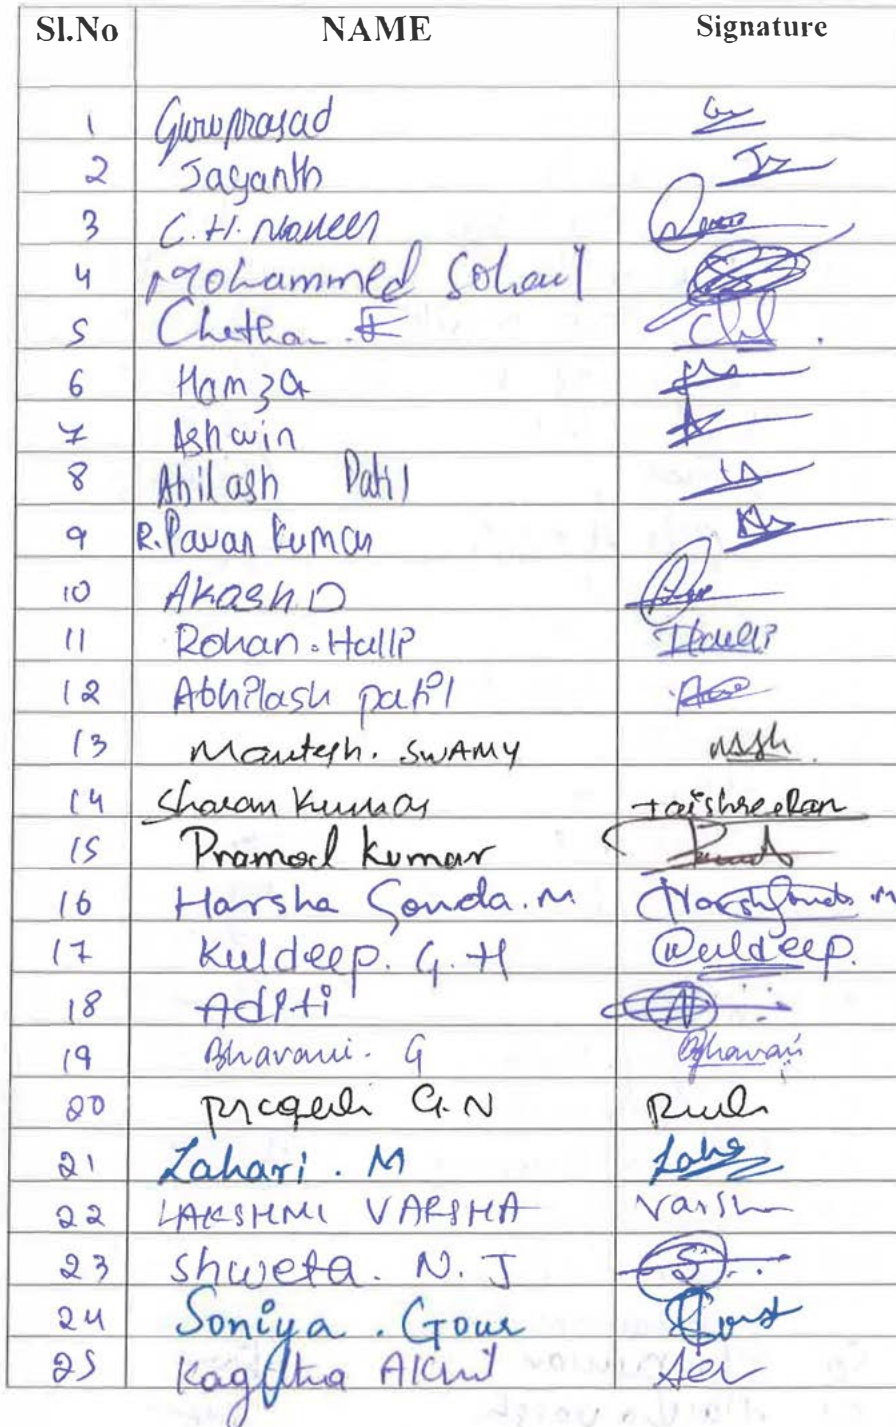 Sl.No NAME Signature
1 Guruprasad
2 Jayanth
3 C.H. Naveen
4 Mohammed Sohail
5 Chethan. E
6 Hamza
7 Ashwin
8 Abilash Patil
9 R.Pavan Kumar
10 Akash.D
11 Rohan.Halli Halli
12 Abhilash patil
13 Mantesh. SWAMY
14 Sharan Kumar Jaishreeram
15 Pramod Kumar
16 Harsha Gowda.M Harsha Gowda.M
17 Kuldeep. G.H Kuldeep.
18 Aditi
19 Bhavani. G Bhavani
20 G.N
21 Lahari. M
22 LAKSHMI VARSHA Varsh
23 Shweta. N. J
24 Soniya. Gour
25 Kagitha Akhil